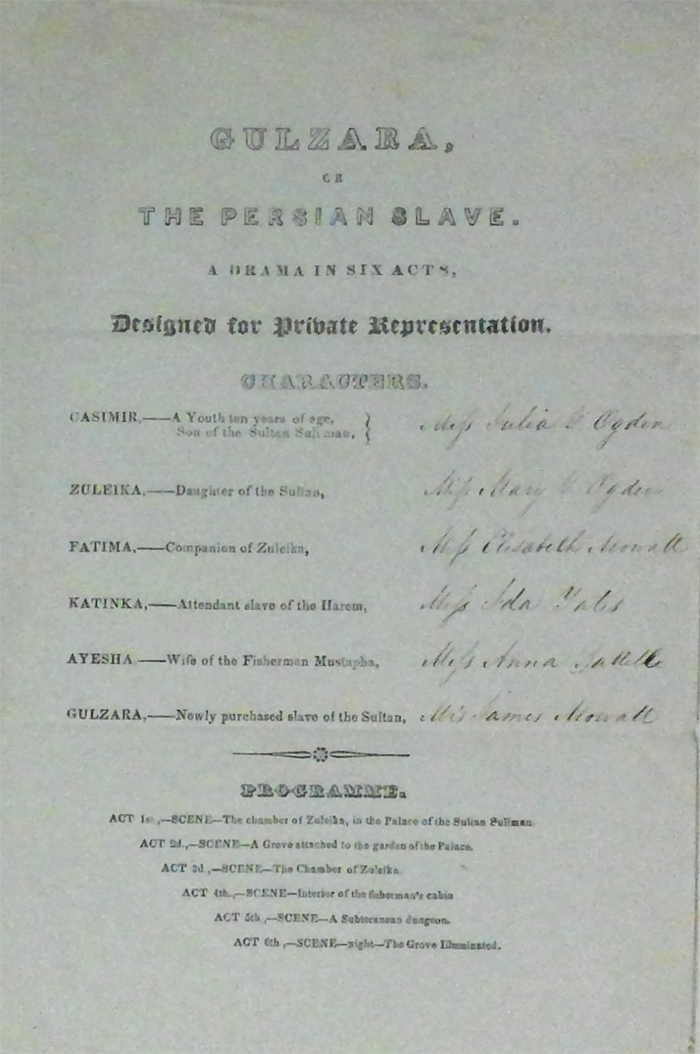 GULZARA,
OR
THE PERSIAN SLAVE.
A DRAMA IN SIX ACTS,
Designed for Private Representation.
CHARACTERS.
CASIMIR,—A Youth ten years of age, } Miss Julia G Ogden
Son of the Sultan Suliman,
ZULEIKA,—Daughter of the Sultan, Miss Mary G Ogden
FATIMA,—Companion of Zuleika, Miss Elisabeth Mowatt
KATINKA,—Attendant slave of the Harem, Miss Ida
AYESHA—Wife of the Fisherman Mustapha, Miss Anna
GULZARA,—Newly purchased slave of the Sultan, Mrs James Mowatt
PROGRAMME.
ACT 1st,—SCENE—The chamber of Zuleika, in the Palace of the Sultan Suliman
ACT 2d.,—SCENE—A Grove attached to the garden of the Palace.
ACT 3d,—SCENE—The Chamber of Zuleika.
ACT 4th.,—SCENE—Interior of the fisherman's cabin
ACT 5th,—SCENE—A Subteranean dungeon.
ACT 6th,—SCENE—night—The Grove Illuminated.